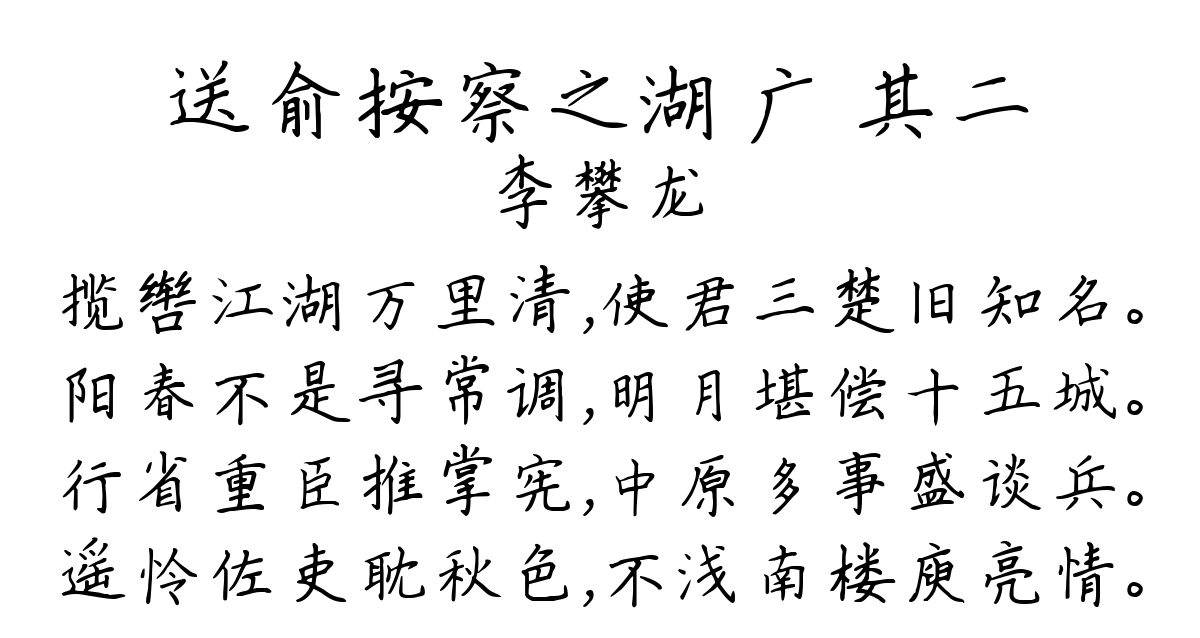 送俞按察之湖广 其二
李攀龙
揽辔江湖万里清,使君三楚旧知名。
阳春不是寻常调,明月堪偿十五城。
行省重臣推掌宪,中原多事盛谈兵。
遥怜佐吏耽秋色,不浅南楼庾亮情。